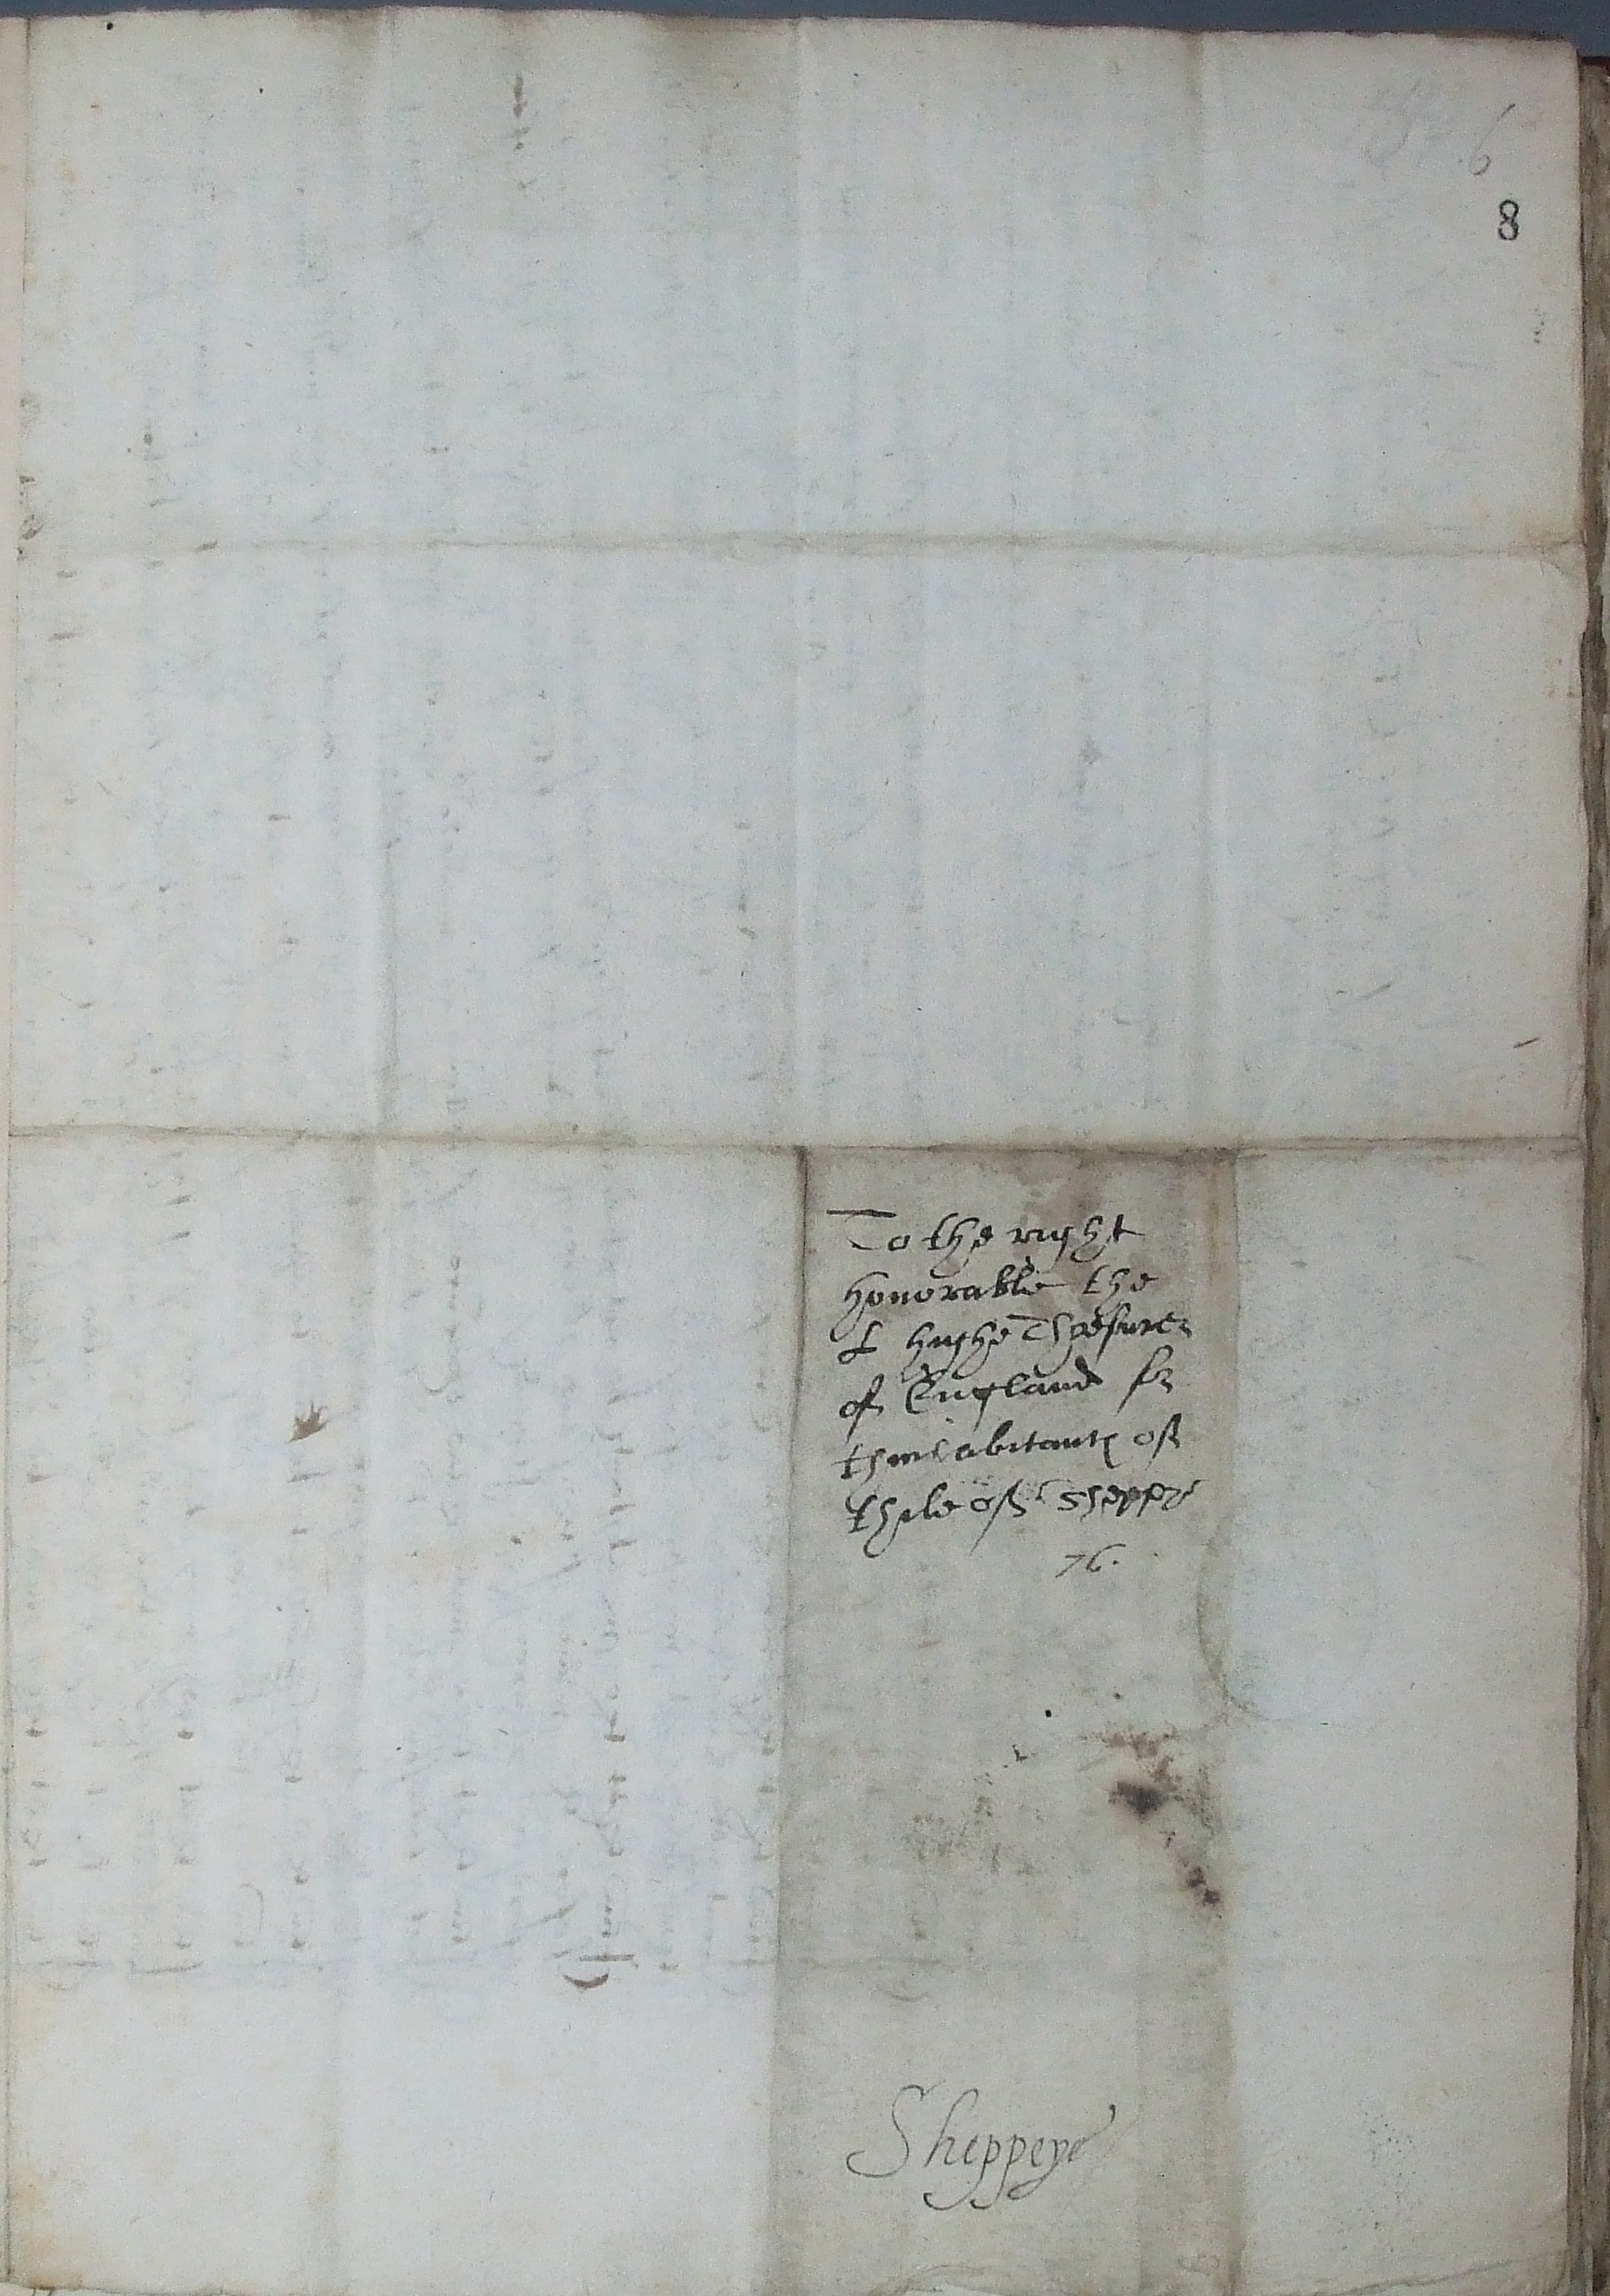 6
8
To the right
honorable the
L highe Threasurer
of England for
thinhabitantes of
thile of Sheppy
76.
Sheppeye